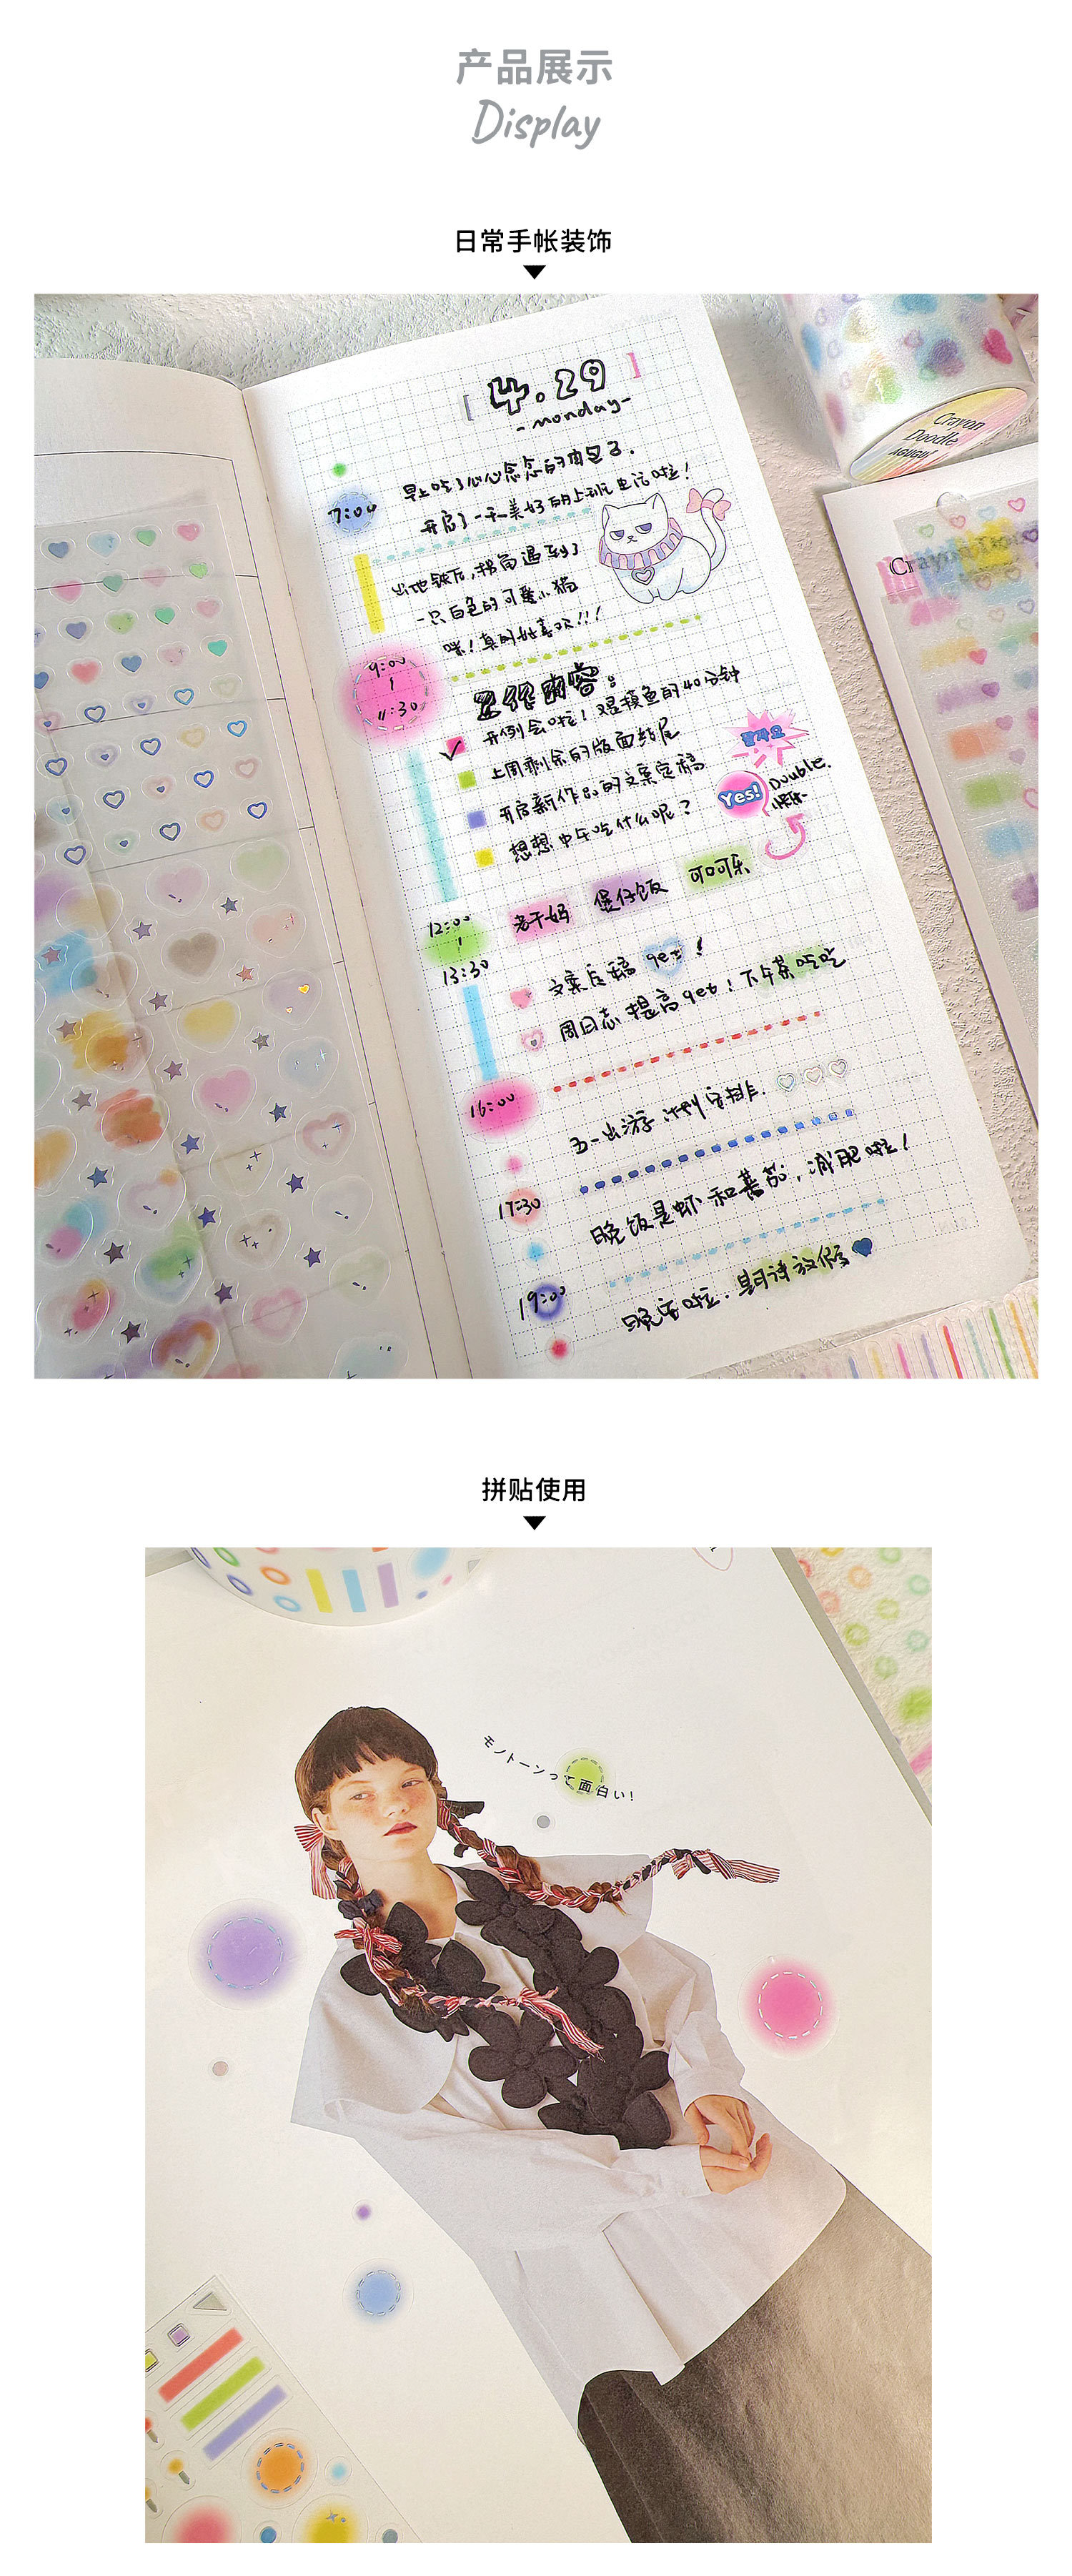 产品展示
Display
日常手帐装饰
[ 4.29 ]
-monday-
早上吃了心心念念的肉包了.
7:00
开启了一天美好的上班生活啦!
出地铁后,拐角遇到了
一只白色的可爱小猫
咪!真的好喜欢!!!
9:00
11:30
工作内容:
开例会啦!又是摸鱼的40分钟
上周剩余的版面结尾
开启新作品的文案定稿
想想中午吃什么呢?
Yes!
Double.
老干妈 煲仔饭 可口可乐
12:00
13:30
文案后稿 get!
周日志提高get!下午茶吃吃
16:00
五一出游计划安排.
17:30
晚饭是虾和蕃茄,减肥啦!
19:00
晚安啦.期待放假
Crayon
Doodle
AGUGU!
拼贴使用
モノトーンって面白い!